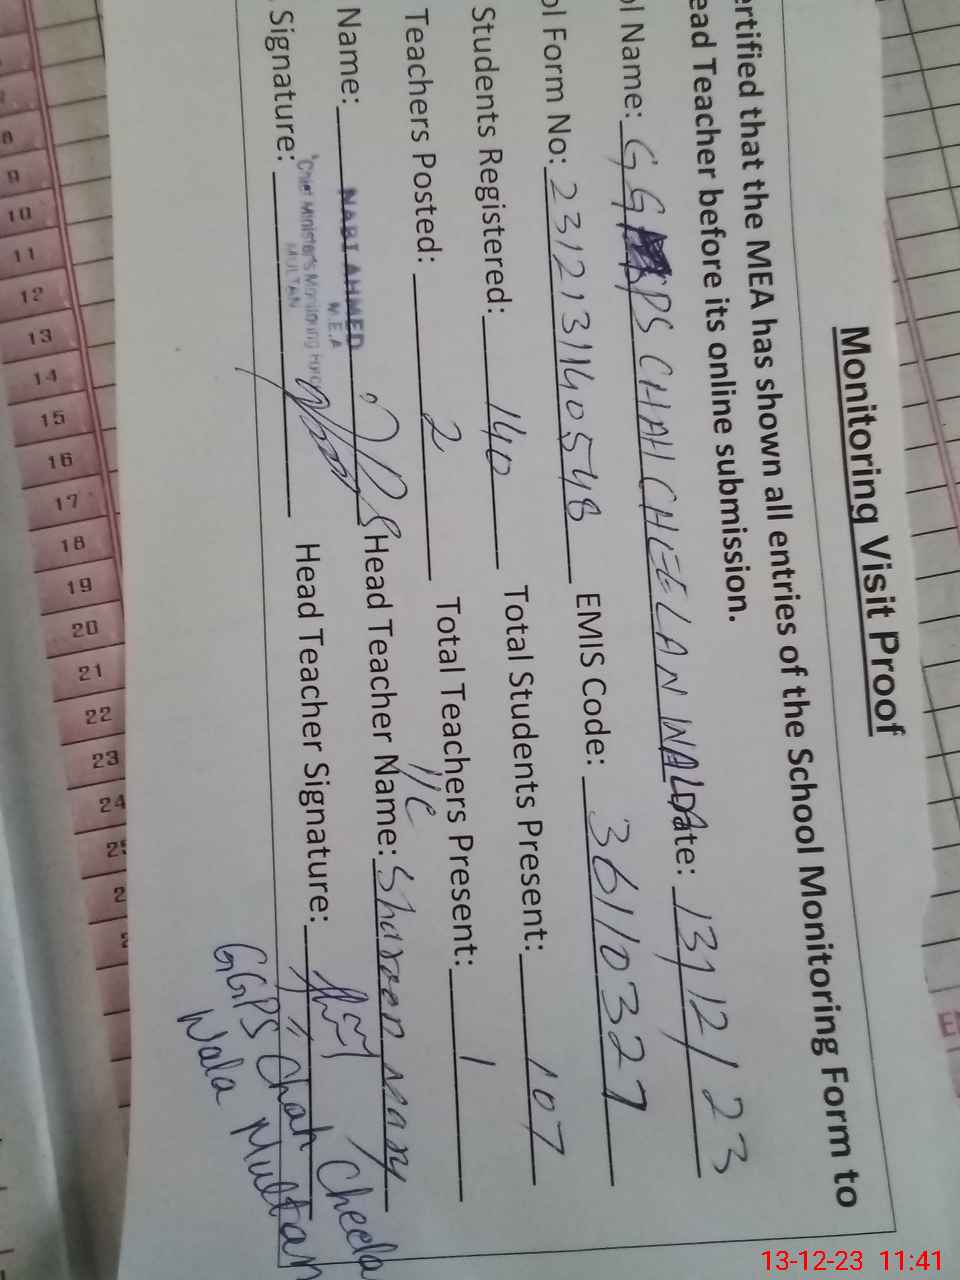 Monitoring Visit Proof
ertified that the MEA has shown all entries of the School Monitoring Form to
ead Teacher before its online submission.
ol Name: GGPS CHAH CHEELAN WALA Date: 13/12/23
ol Form No: 23121311405​48 EMIS Code: 36110327
Students Registered: 140 Total Students Present: 107
Teachers Posted: 2 Total Teachers Present: 1
Name: NABI AHMED Head Teacher Name: Shaheen
M.E.A
I/C
Signature: Head Teacher Signature:
Chief Minister's Monitoring Force
MULTAN
GGPS Chah Cheela
Wala Multan
9
10
11
12
13
14
15
16
17
18
19
20
21
22
23
24
13-12-23 11:41